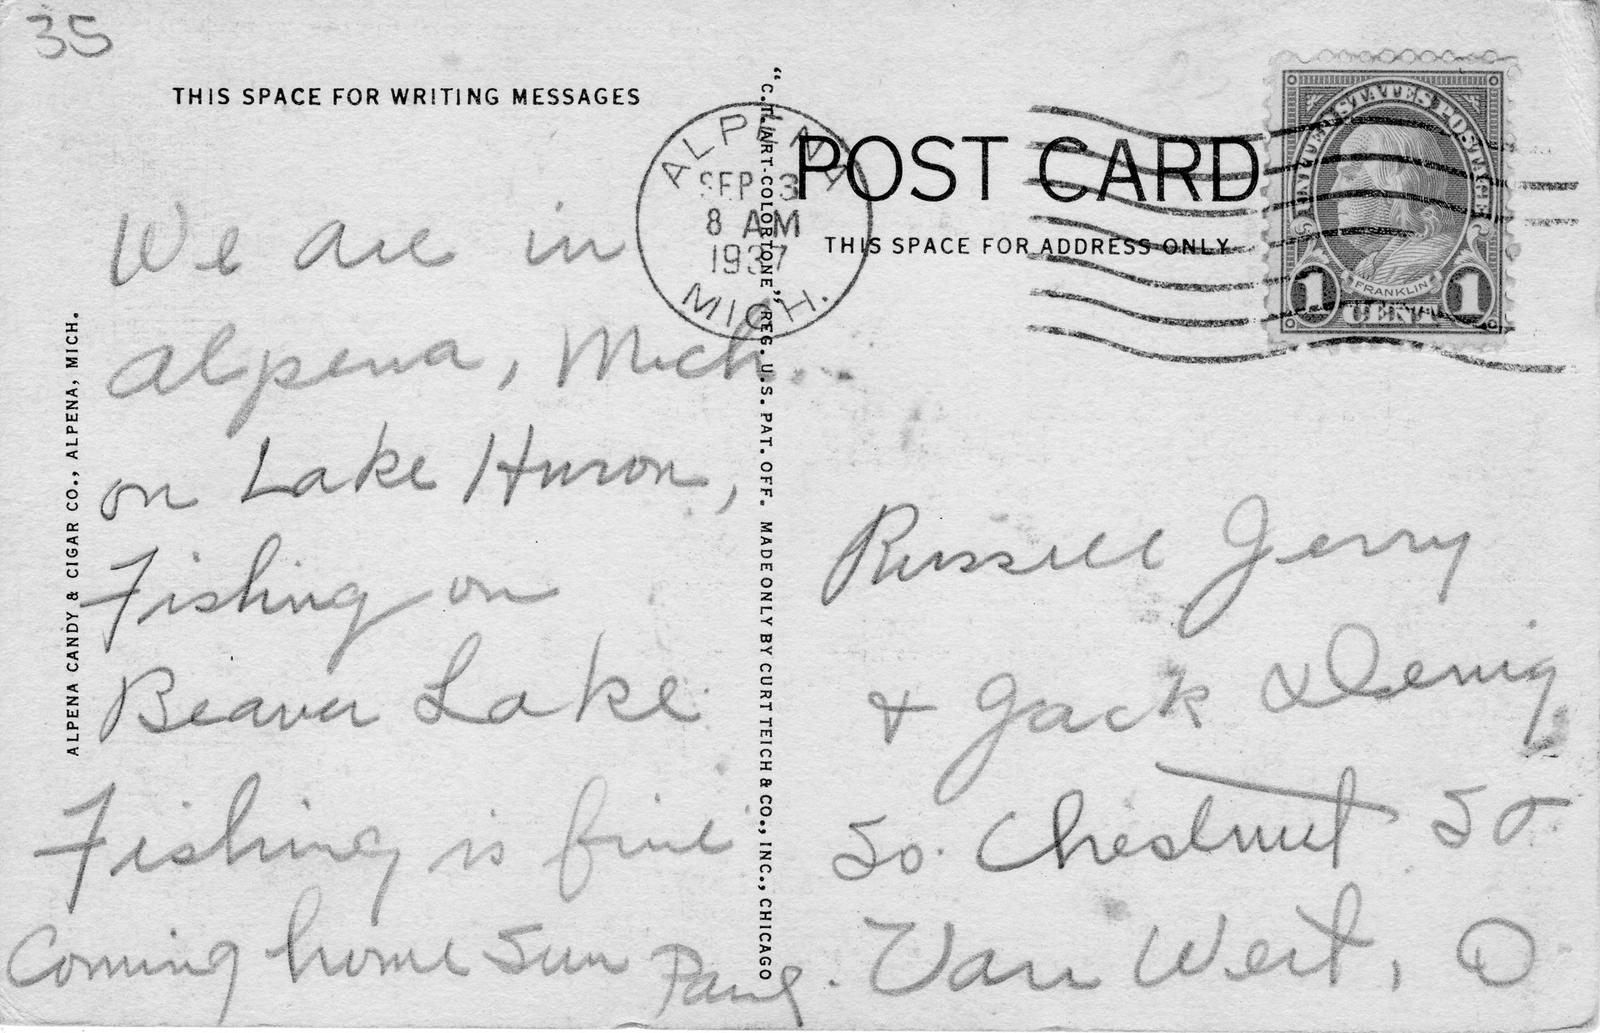 35
THIS SPACE FOR WRITING MESSAGES
We are in
Alpena, Mich.
on Lake Huron,
Fishing on
Beaver Lake
Fishing is fine
Coming home Sun
ALPENA CANDY & CIGAR CO., ALPENA, MICH.
"C.T. ART-COLORTONE" REG. U.S. PAT. OFF. MADE ONLY BY CURT TEICH & CO., INC., CHICAGO
ALPENA
SEP 3
8 AM
1937
MICH.
POST CARD
THIS SPACE FOR ADDRESS ONLY
UNITED STATES POSTAGE
FRANKLIN
1 CENT 1
Russell Jerry
+ Jack Denig
So. Chestnut St
Van Wert, O